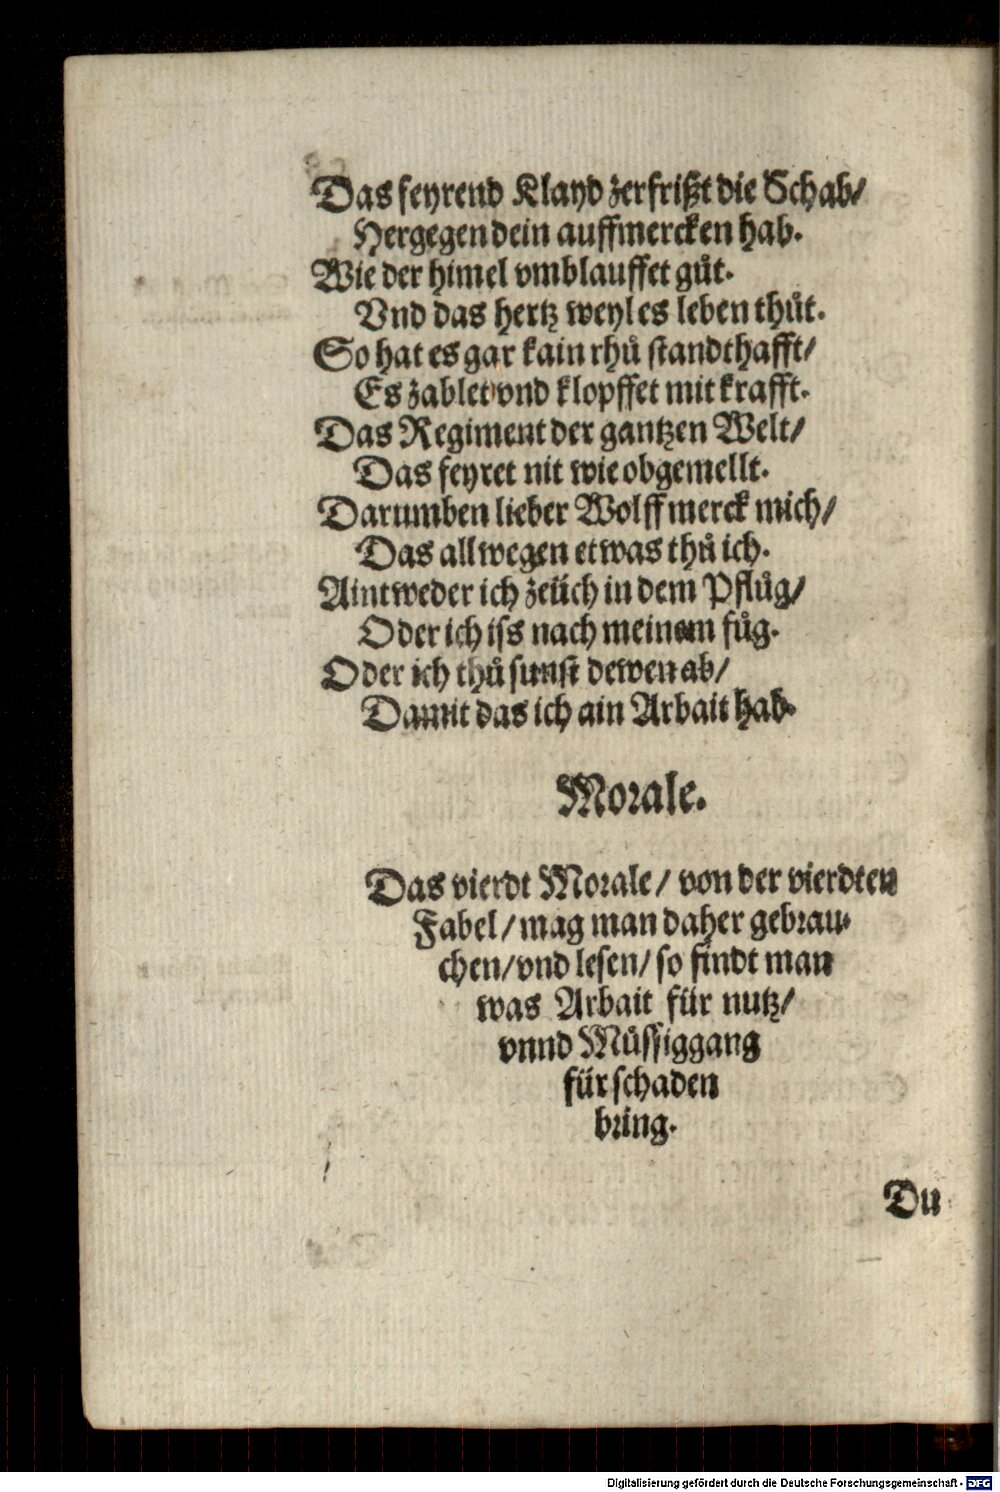 Das feyrend Klayd zerfrißt die Schab/
Hergegen dein auffmercken hab.
Wie der himel vmblauffet gůt.
Vnd das hertz weyl es leben thůt.
So hat es gar kain rhů standthafft/
Es zablet vnd klopffet mit krafft.
Das Regiment der gantzen Welt/
Das feyret nit wie obgemellt.
Darumben lieber Wolff merck mich/
Das allwegen etwas thů ich.
Aintweder ich zeüch in dem Pflůg/
Oder ich iss nach meinem fůg.
Oder ich thů sunst dewen ab/
Damit das ich ain Arbait hab.
Morale.
Das vierdt Morale/ von der vierdten
Fabel/ mag man daher gebrau-
chen/ vnd lesen/ so findt man
was Arbait für nutz/
vnnd Můssiggang
für schaden
bring.
Du
Digitalisierung gefördert durch die Deutsche Forschungsgemeinschaft - DFG